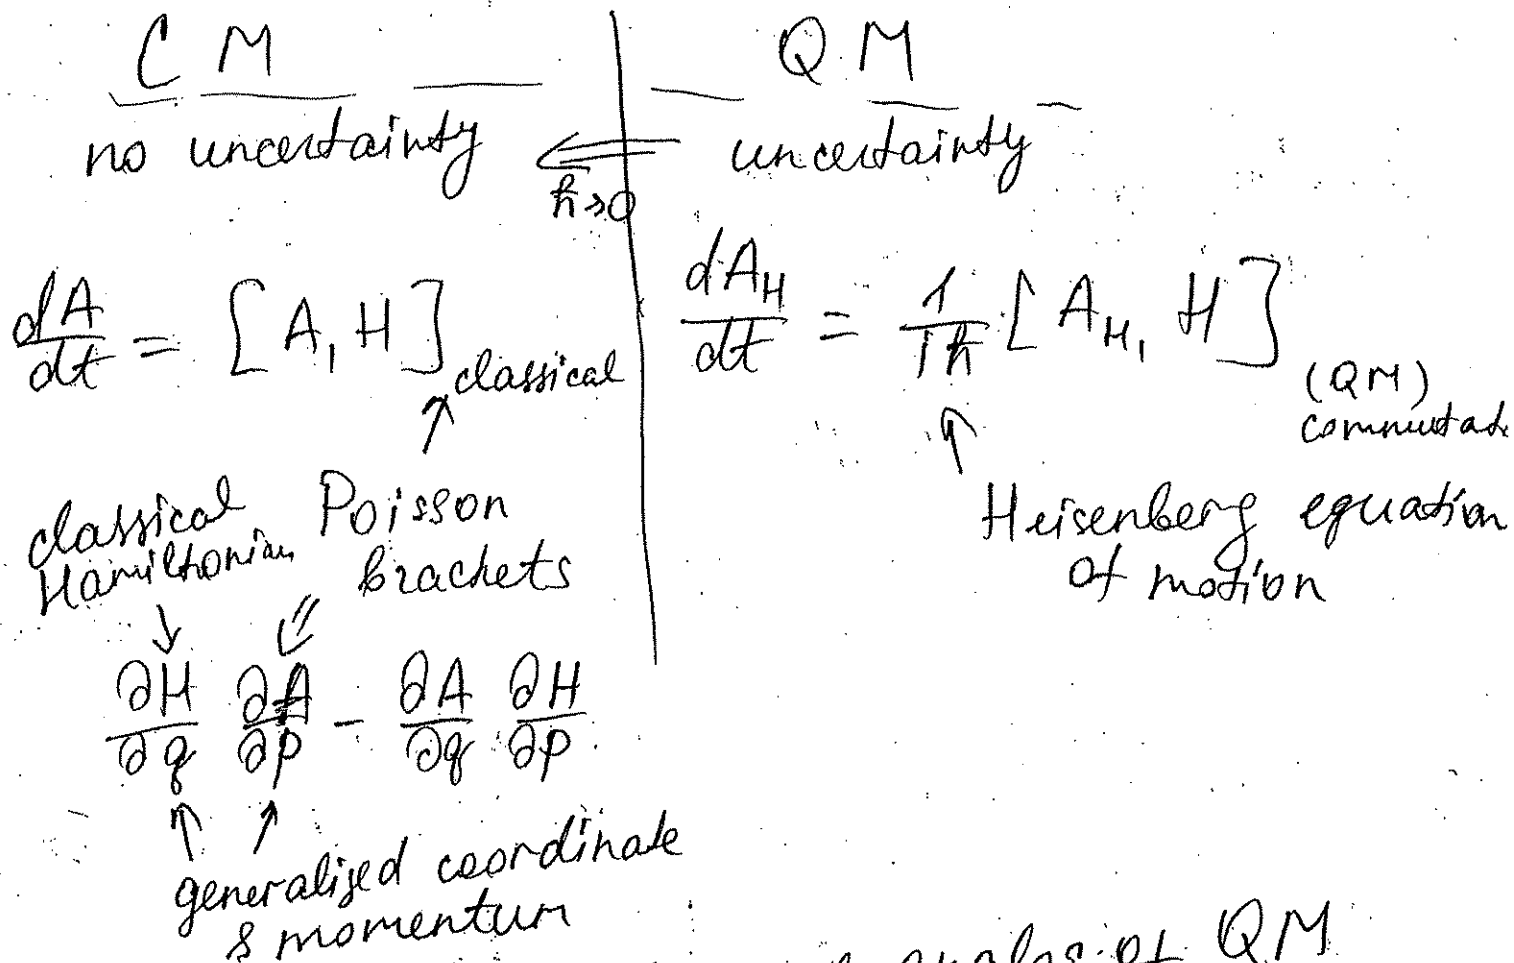 C M
no uncertainty
ħ→0
dA/dt = [A, H] classical
classical Hamiltonian
Poisson brackets
∂H/∂q ∂A/∂p - ∂A/∂q ∂H/∂p
generalized coordinate
& momentum
QM
uncertainty
dA_H/dt = 1/iħ [A_H, H] (QM)
Heisenberg equation
of motion
of QM